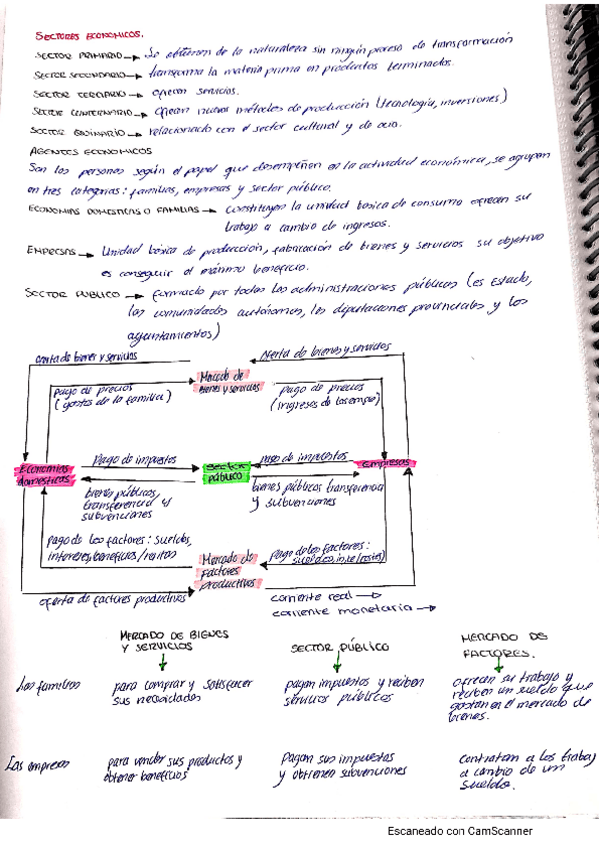 SECTORES ECONOMICOS.
SECTOR PRIMARIO → Se obtienen de la naturaleza sin ningún proceso de transformación
SECTOR SECUNDARIO → transforma la materia prima en productos terminados.
SECTOR TERCIARIO → ofrecen servicios.
SECTOR CUATERNARIO → ofrecen nuevos métodos de producción (tecnología, inversiones)
SECTOR QUINARIO → relacionado con el sector cultural y de ocio.
AGENTES ECONOMICOS
Son las personas según el papel que desempeñan en la actividad económica, se agrupan
en tres categorías: familias, empresas y sector público.
ECONOMIAS DOMESTICAS O FAMILIAS → Constituyen la unidad básica de consumo ofrecen su
trabajo a cambio de ingresos.
EMPRESAS → Unidad básica de producción, fabricación de bienes y servicios su objetivo
es conseguir el máximo beneficio.
SECTOR PUBLICO → formado por todas las administraciones públicas (es estado,
las comunidades autónomas, las diputaciones provinciales y los
ayuntamientos)
de bienes y servicios
oferta de bienes y servicios
Mercado de
bienes y servicios
pago de precios
(gastos de la familia)
pago de precios
(ingresos de las emp)
Economias
domesticas
Pago de impuestos
Sector
público
pago de impuestos
empresas
bienes públicos,
transferencia y
subvenciones
bienes públicos transferencia
y subvenciones
pago de los factores: sueldos,
intereses, beneficios/rentas
Mercado de
factores
productivos
Pago de los factores:
oferta de factores productivos
corriente real →
corriente monetaria →
MERCADO DE BIENES
Y SERVICIOS
SECTOR PÚBLICO
MERCADO DE
FACTORES.
Las familias
para comprar y satisfacer
sus necesidades
pagan impuestos y reciben
servicios públicos
ofrecen su trabajo y
reciben un sueldo que
gastan en el mercado de
bienes.
Las empresas
para vender sus productos y
obtener beneficios
Pagan sus impuestos
y obtienen subvenciones
Contratan a los trabaj
a cambio de un
sueldo.
Escaneado con CamScanner